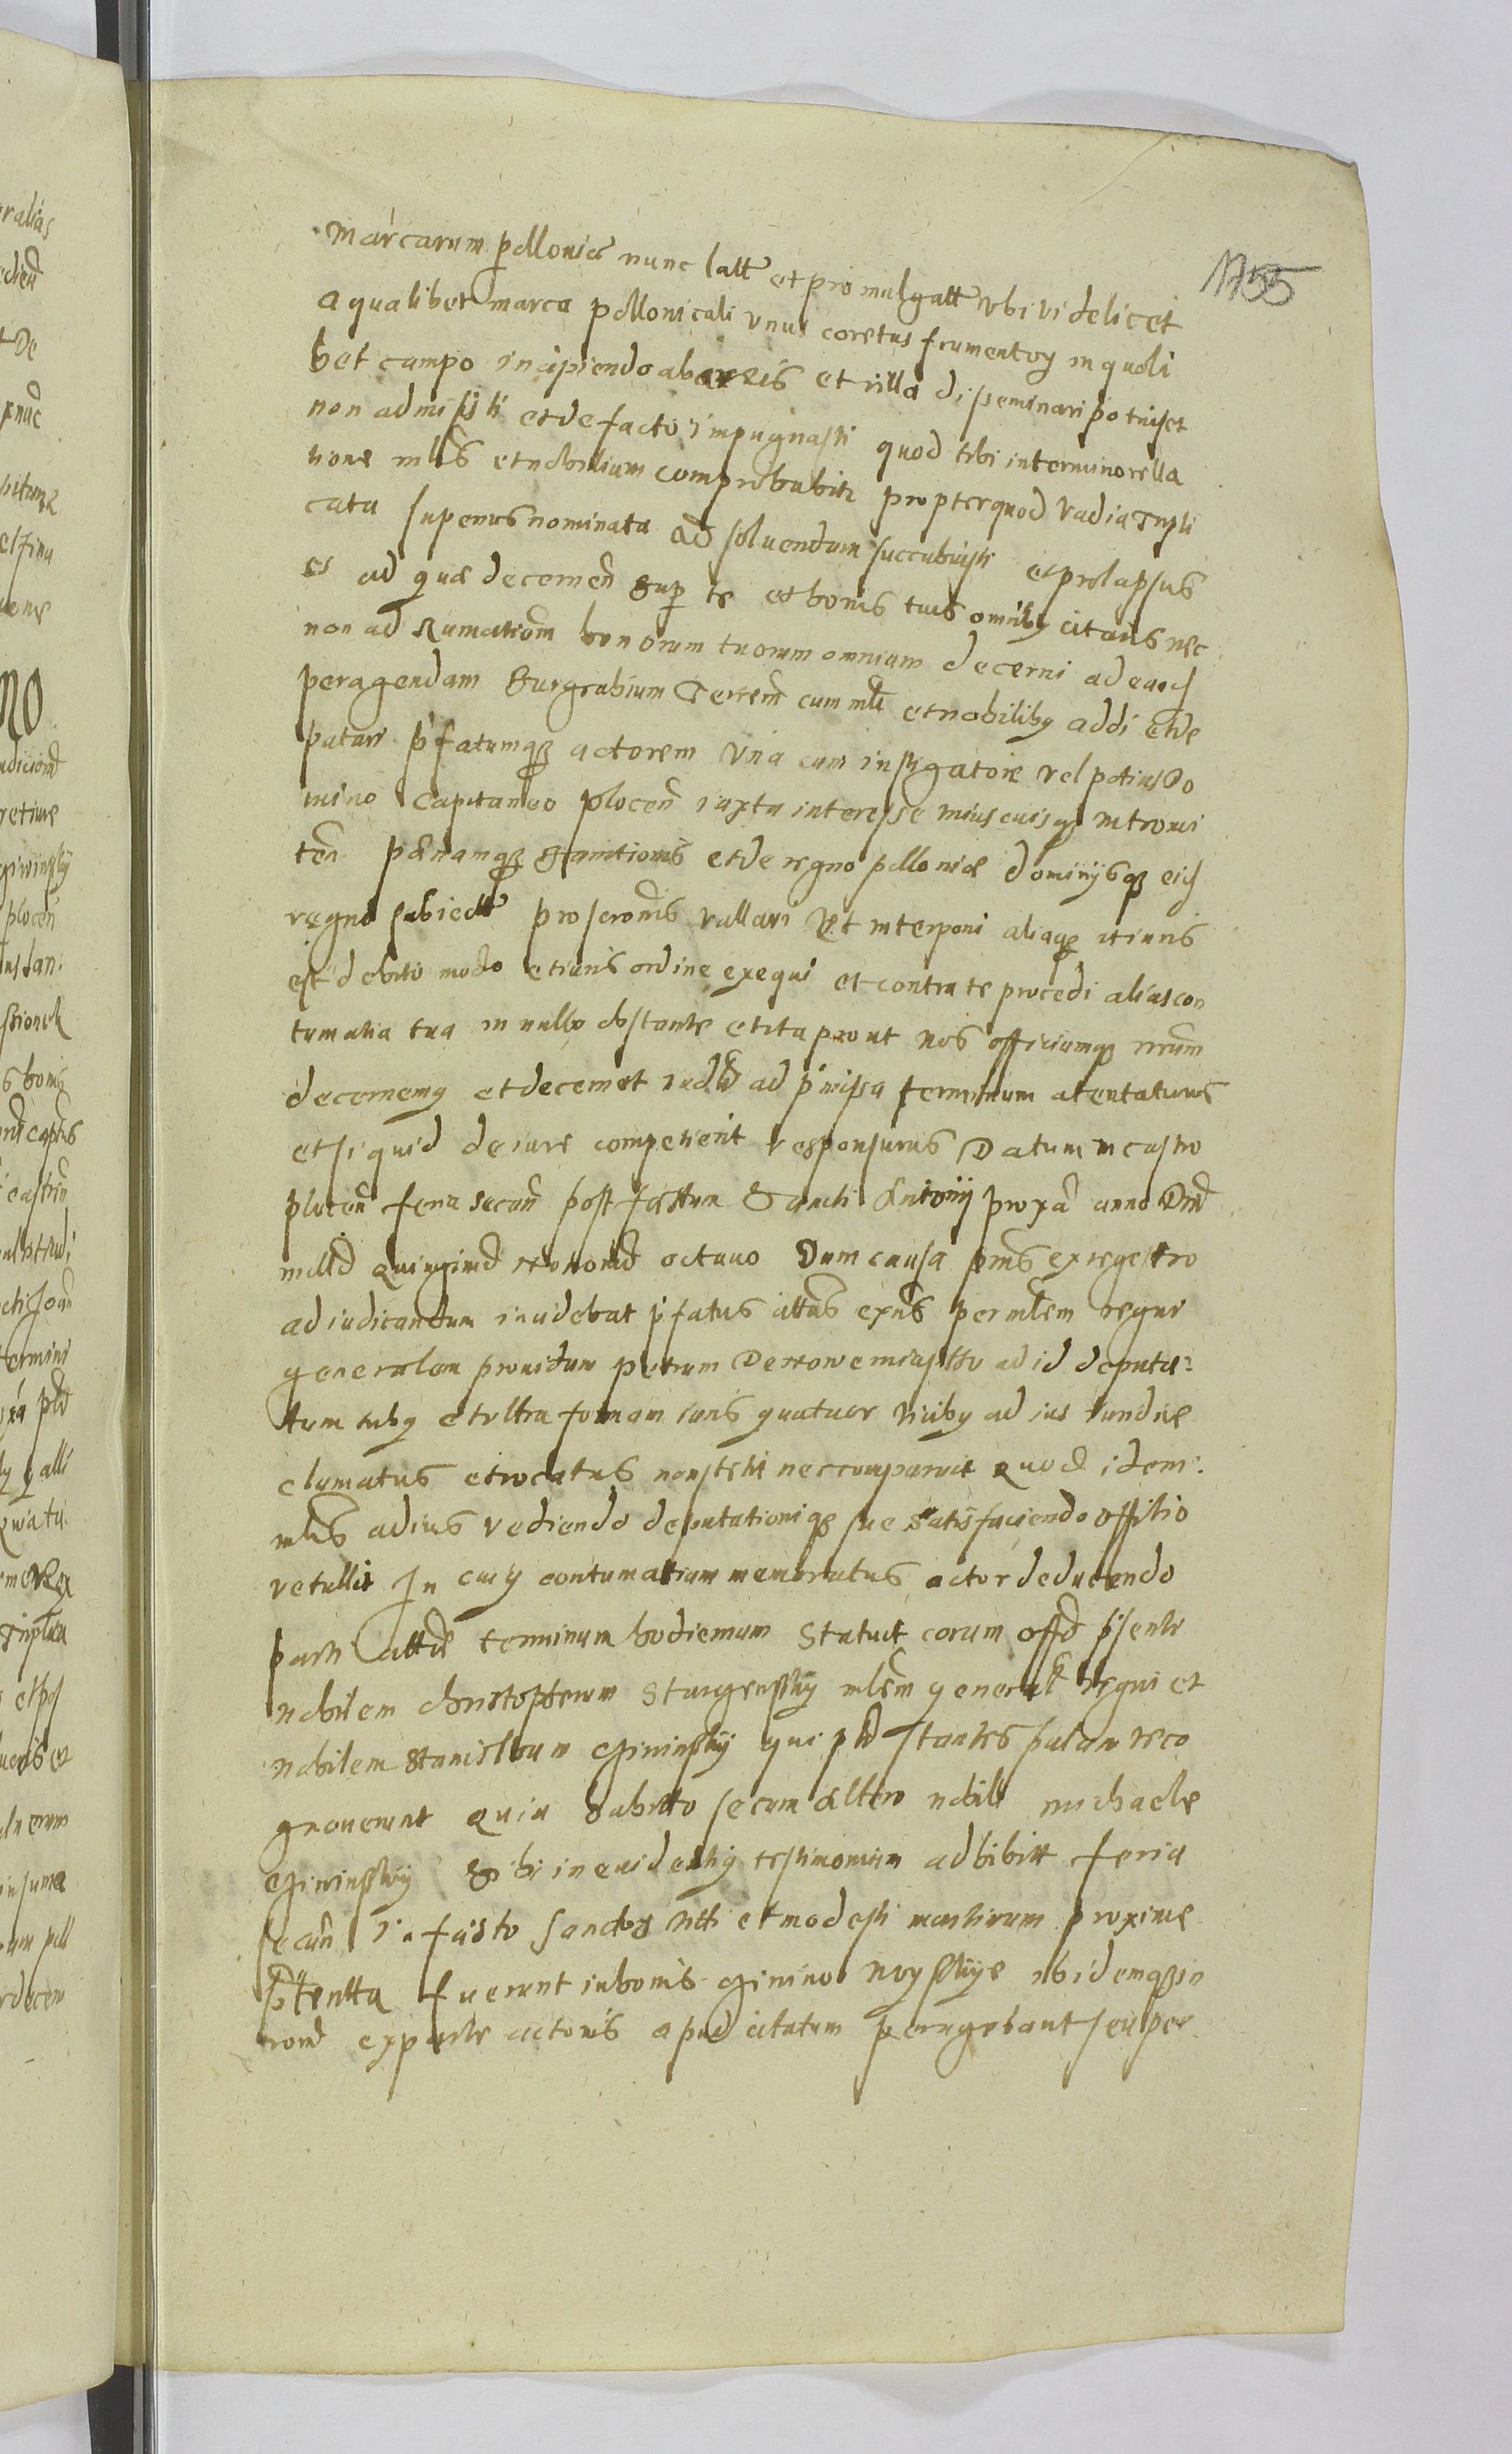 marcarum pollonice nunc latt et promulgatt vbi videlicet
1755
a qualibet marca pollonicali vnus coretus frumentorum in quoli
bet campo incipiendo ab areis et villa disseminari potuisset
non admisisti et de facto impugnasti quod tibi in termino rella
tione mlis et nobilium comprobabitr propterquod vadia tripli
cata superius nominata ad soluendum succubuisti et prolapsus
es ad quæ decernen sup te et bonis tuis omnibq citaris nec
non ad bonorum tuorum omnium decerni ad eaqd
peragendam Burgrabium Terren cum mli et nobilibq addi et de
putari pfatumqz actorem vna cum instigatore vel potius Do
mino Capitaneo plocen iuxta interesse vniuscuisqz introni
ten pænamqz banitionis et de regno polloniæ dominijsqz eid
regno subiectt proscronis vallari et interponi aliaqz vt iuris
est debito modo et iuris ordine exequi et contra te procedi alias con
tumatia tua in nullo obstante et ita prout nos officiumqz nrum
decernemq et decernet iudlr ad pmissa terminum atentaturus
et si quid de iure competierit responsurus Datum in castro
plocen feria secun post festum Sancti Antonij proxa anno Dni
milld quingimd nonomd octauo Dum causa pns ex regestro
ad iudicandum incidebat pfatus citts exns per mlem regni
generalem prouidum petrum ad id deputa:
tum tribq et vltra formam iuris quatuor vicibq ad ius tandue
clamatus et vocatus non stetit nec comparuit Quod idem
mlis ad ius rediendo deputationiqz sue satisfaciendo offitio
retullit In cuiq contumatiam memoratus actor deducendo
parti cittæ terminum hodiernum Statuit coram offo psenti
nobilem christopherum mlem generale regni et
nobilem Stanislaum Gininskij qui ptr stantes palam reco
gnouerunt quia Subitto secum altero nobili michaele
Gininskij sibi in euidentiq testimonium adhibitt feria
secun in fæsto sanctorum viti et modesti martirum proxime
ptentta fuerunt in bonis ginino ibidemqz in
trond ex parte actoris apud citatum peragebant seu per